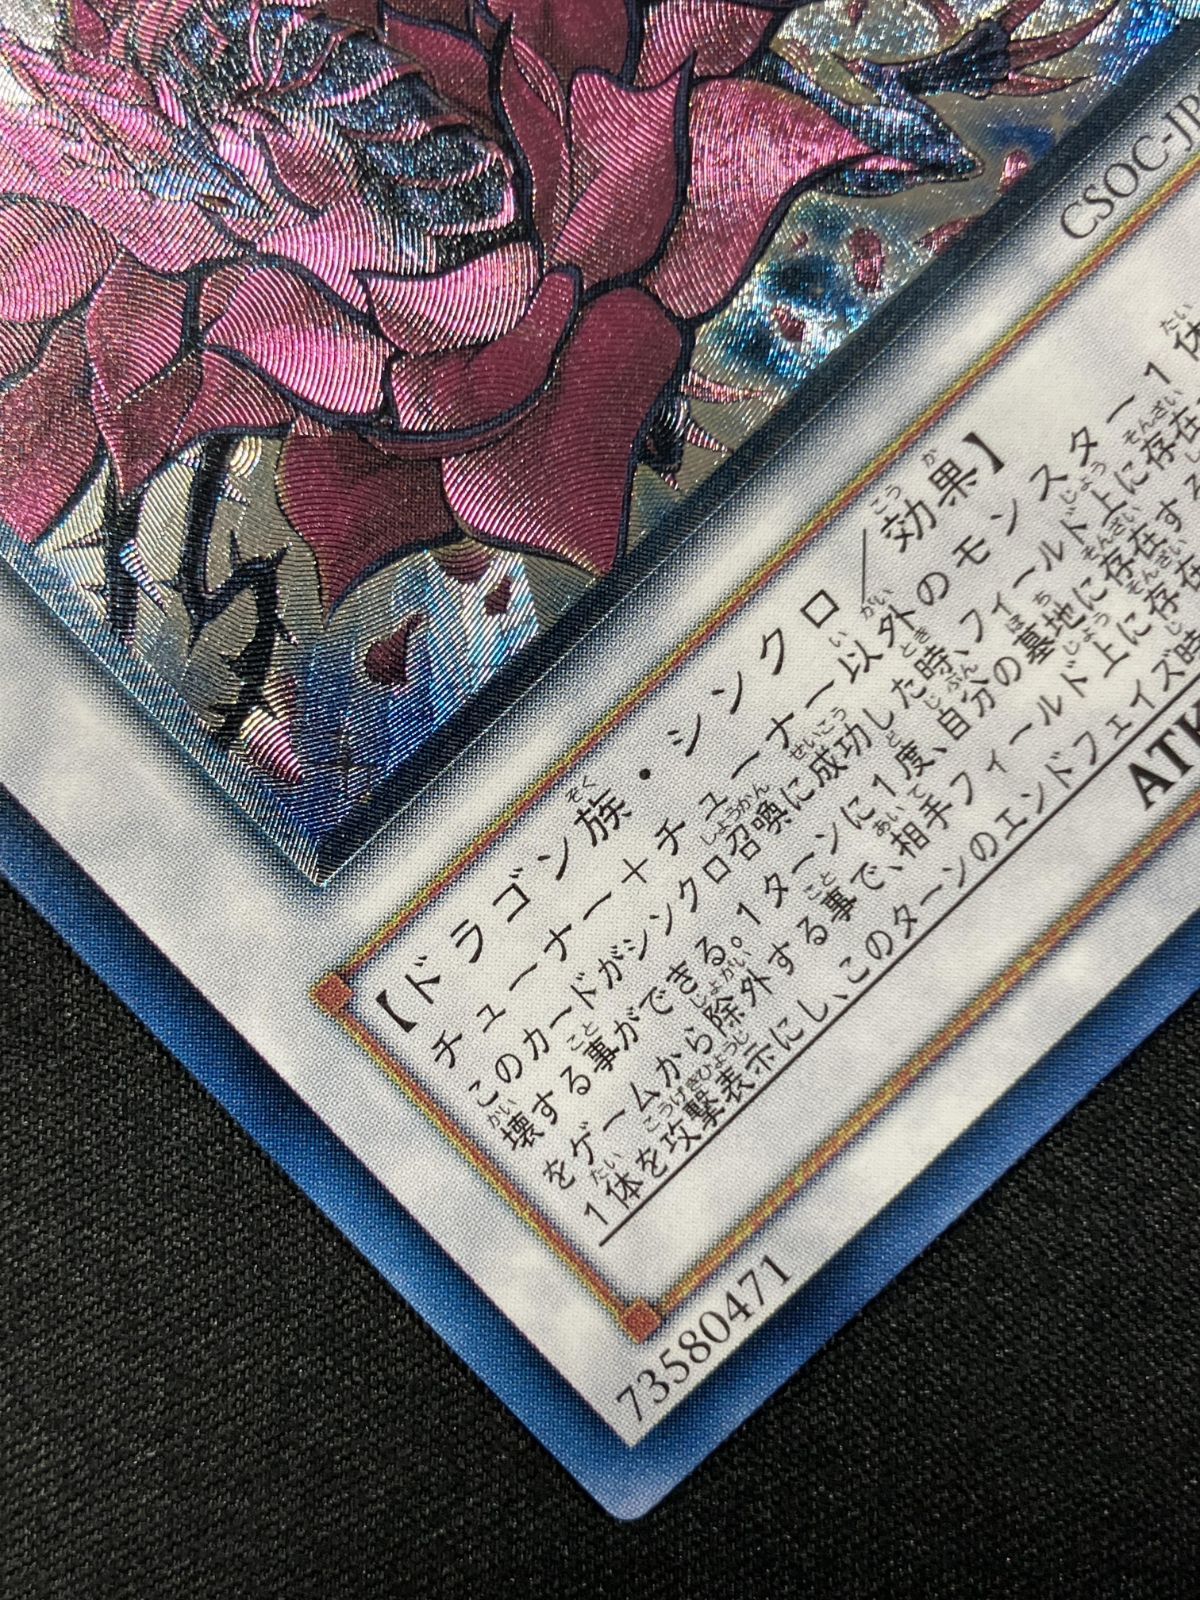 CSOC-JP
【ドラゴン族・シンクロ/効果】
チューナー+チューナー以外のモンスター1体
このカードがシンクロ召喚に成功した時、フィールド上に存在
壊する事ができる。1ターンに1度、自分の墓地に存在する
をゲームから除外する事で、相手フィールド上に存在
1体を攻撃表示にし、このターンのエンドフェイズ時
ATK
73580471